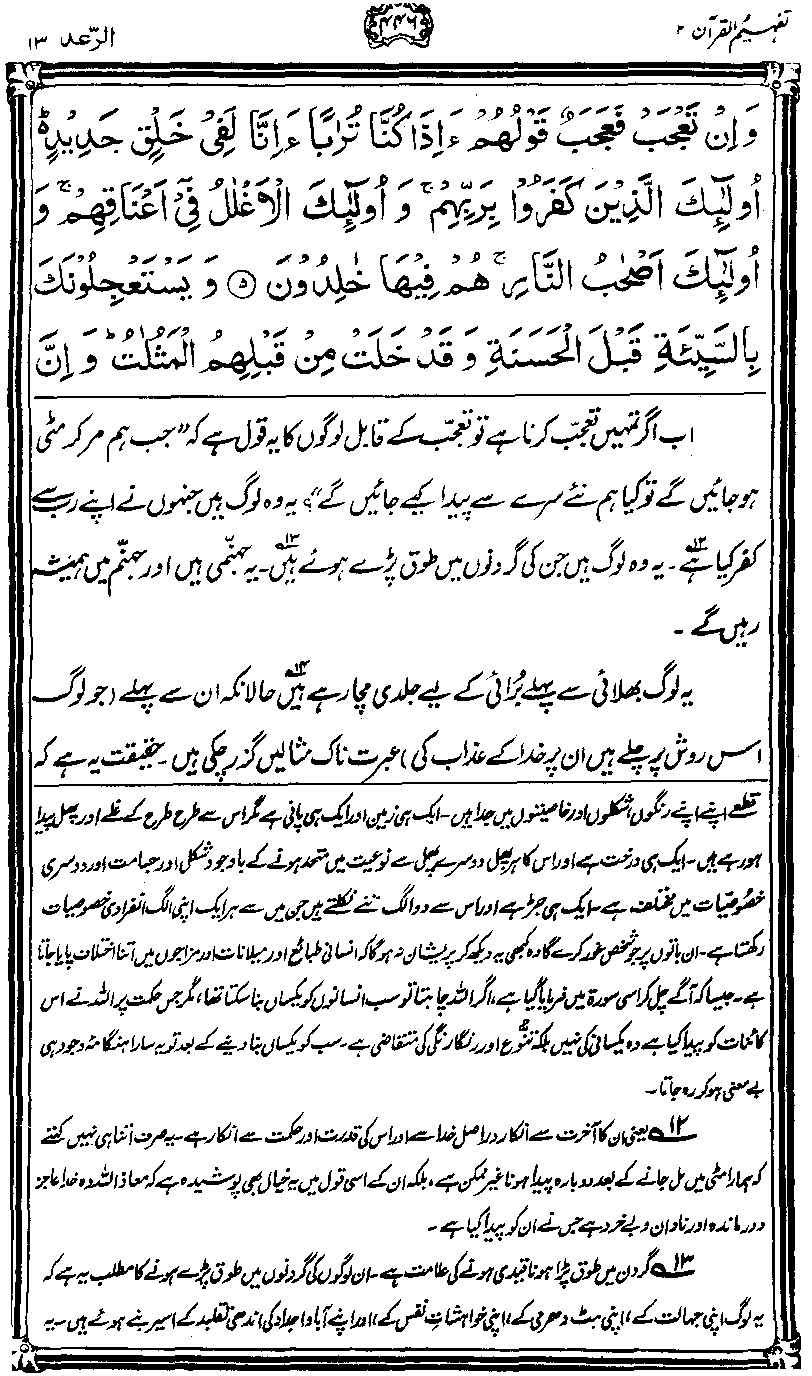 تفہیم القرآن ۲
۴۴۶
الرّعد ۱۳
وَاِنْ تَعْجَبْ فَعَجَبٌ قَوْلُهُمْ ءَاِذَا كُنَّا تُرٰبًا ءَاِنَّا لَفِیْ خَلْقٍ جَدِیْدٍ ؕ
اُولٰٓئِكَ الَّذِیْنَ كَفَرُوْا بِرَبِّهِمْ ۚ وَ اُولٰٓئِكَ الْاَغْلٰلُ فِیْٓ اَعْنَاقِهِمْ ۚ وَ
اُولٰٓئِكَ اَصْحٰبُ النَّارِ ۚ هُمْ فِیْهَا خٰلِدُوْنَ ۝۵ وَ یَسْتَعْجِلُوْنَكَ
بِالسَّیِّئَةِ قَبْلَ الْحَسَنَةِ وَ قَدْ خَلَتْ مِنْ قَبْلِهِمُ الْمَثُلٰتُ ؕ وَ اِنَّ
اب اگر تمہیں تعجّب کرنا ہے تو تعجّب کے قابل لوگوں کا یہ قول ہے کہ ”جب ہم مر کر مٹی
ہو جائیں گے تو کیا ہم نئے سرے سے پیدا کیے جائیں گے“؟ یہ وہ لوگ ہیں جنہوں نے اپنے رب سے
کفر کیا ہے۱۲۔ یہ وہ لوگ ہیں جن کی گردنوں میں طوق پڑے ہوئے ہیں۱۳۔ یہ جہنّمی ہیں اور جہنّم میں ہمیشہ
رہیں گے ۔
یہ لوگ بھلائی سے پہلے بُرائی کے لیے جلدی مچا رہے ہیں۱۴ حالانکہ ان سے پہلے (جو لوگ
اس روش پر چلے ہیں ان پر خدا کے عذاب کی) عبرت ناک مثالیں گزر چکی ہیں۔ حقیقت یہ ہے کہ
قطعے اپنے اپنے رنگوں، شکلوں اور خاصیتوں میں جدا ہیں۔ ایک ہی زمین اور ایک ہی پانی ہے مگر اس سے طرح طرح کے غلے اور پھل پیدا
ہو رہے ہیں۔ ایک ہی درخت ہے اور اس کا ہر پھل دوسرے پھل سے نوعیت میں متحد ہونے کے باوجود شکل اور جسامت اور دوسری
خصوصیات میں مختلف ہے۔ ایک ہی جڑ ہے اور اس سے دو الگ تنے نکلتے ہیں جن میں سے ہر ایک اپنی الگ انفرادی خصوصیات
رکھتا ہے۔ ان باتوں پر جو شخص غور کرے گا وہ کبھی یہ دیکھ کر پریشان نہ ہوگا کہ انسانی طبائع اور میلانات اور مزاجوں میں اتنا اختلاف پایا جاتا
ہے۔ جیسا کہ آگے چل کر اسی سورۃ میں فرمایا گیا ہے، اگر اللہ چاہتا تو سب انسانوں کو یکساں بنا سکتا تھا، مگر جس حکمت پر اللہ نے اس
کائنات کو پیدا کیا ہے وہ یکسانی کی نہیں بلکہ تنوّع اور رنگارنگی کی متقاضی ہے۔ سب کو یکساں بنا دینے کے بعد تو یہ سارا ہنگامۂ وجود ہی
بے معنی ہو کر رہ جاتا۔
۱۲ یعنی ان کا آخرت سے انکار دراصل خدا سے اور اس کی قدرت اور حکمت سے انکار ہے۔ یہ صرف اتنا ہی نہیں کہتے
کہ ہمارا مٹی میں مل جانے کے بعد دوبارہ پیدا ہونا غیر ممکن ہے، بلکہ ان کے اسی قول میں یہ خیال بھی پوشیدہ ہے کہ معاذ اللہ وہ خدا عاجز
و درماندہ اور نادان و بے خرد ہے جس نے ان کو پیدا کیا ہے۔
۱۳ گردن میں طوق پڑا ہونا قیدی ہونے کی علامت ہے۔ ان لوگوں کی گردنوں میں طوق پڑے ہونے کا مطلب یہ ہے کہ
یہ لوگ اپنی جہالت کے، اپنی ہٹ دھرمی کے، اپنی خواہشاتِ نفس کے، اور اپنے آباو اجداد کی اندھی تقلید کے اسیر بنے ہوئے ہیں۔ یہ